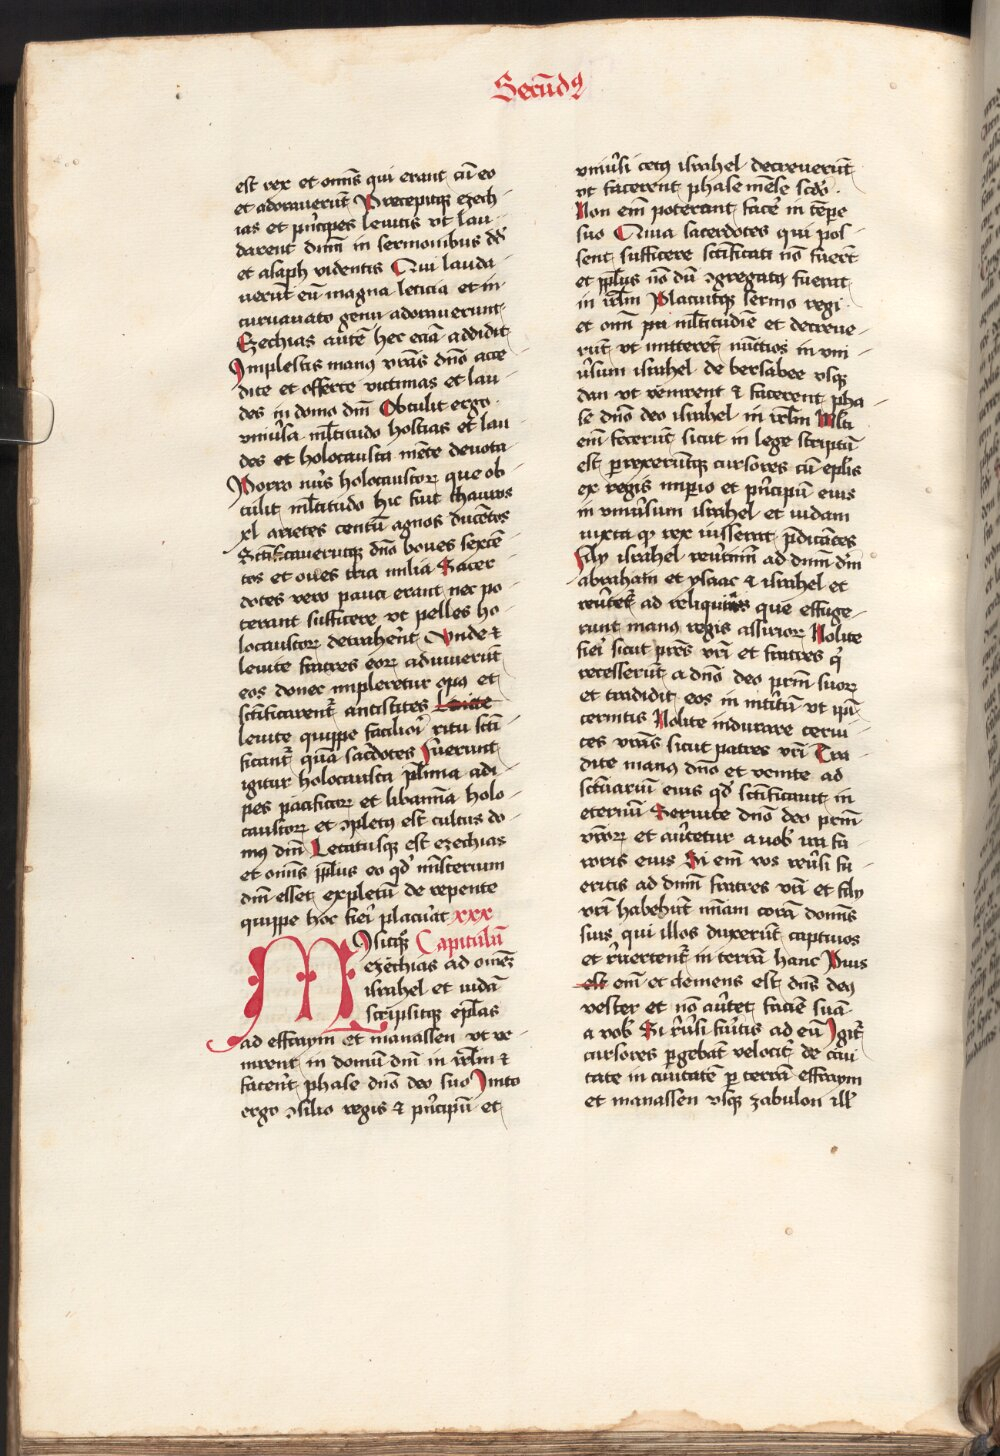 Secūdꝯ
est rex et om̄s qui erant cū eo
et adorauerūt Precepitqꝫ ezech
ias et pͥncipes leuitis vt lau
darent dnm̄ in sermonibus dd̄
et asaph videntis Qui lauda
uerūt eū magna leticia et in
curuauato genu adorauerunt
Ezechias autē hec eciā addidit
Implestis manꝯ vr̄as dn̄o acce
dite et offerte victimas et lau
des in domo dni̅ Obtulit ergo
vniu̾sa ml̄titudo hostias et lau
des et holocausta mēte deuota
Porro nu̾s holocaustoꝝ que ob
tulit ml̄titudo hic fuit thauros
xl arietes centū agnos ducētos
Sctīficaueruntqꝫ dn̄o boues sexcē
tos et oues tria milia Sacer
dotes vero pauci erant nec po
terant sufficere vt pelles ho
locaustoꝝ detraherēt Vnde ⁊
leuite fratres eoꝝ adiuuerūt
eos donec impleretur opꝯ et
sctīficarent᷑ antistites
leuite quippe faciliori ritu scti
ficant᷑ quā sacerdotes fuerunt
igitur holocausta plīma adi
pes pacificoꝝ et libamīa holo
caustoꝝ et ꝯpletꝯ est cultus do
mꝯ dni̅ Letatusqꝫ est ezechias
et om̄s ppl̄us eo qd̓ mīsterium
dni̅ esset expletū de repente
quippe hoc fieri placuāt xxx
Misitqꝫ Capitulū
ezechias ad om̄eꝫ
israhel et iudā
scripsitqꝫ epl̄as
ad effraym et manassen vt ve
nirent in domū dni̅ in irl̄m ⁊
facerēt phase dn̄o deo suo Inito
ergo ꝯsilio regis ⁊ pͥncipū et
vniu̾si cetꝯ israhel decreuerūt
vt facerent phase mēse scd̓o
Non eni̅ poterant face̾ in tēpe
suo Quia sacerdotes qui pos
sent sufficere sctīficati nō fuerāt
et ppl̄us nō dū ꝯgregatꝯ fuerat
in irl̄m Placuitqꝫ sermo regi
et omī ml̄titudīe et decreue
rūt vt mitterēt nūctios in vni
u̾sum israhel de bersabee vsqꝫ
dan vt venirent ⁊ facerent pha
se dn̄o deo israhel in irl̄m Ml̄ti
eni̅ fecerūt sicut in lege scriptū
est ꝑrexerūtqꝫ cursores cū epl̄is
ex regis imperio et pͥncipū eius
in vniu̾sum israhel et iudam
iuxta qꝫ rex iusserat p̄dicātes
filÿ israhel reu̾timīni ad dnm̄ dm̄
abraham et ysaac ⁊ israhel et
reu̾tet᷑ ad reliquias que effuge
runt manꝯ regis assirioꝝ Nolite
fieri sicut pr̄es vr̄i et fratres qͥ
recesserūt a dn̄o deo pr̄m suoꝝ
et tradidit eos in intitū vt ipi̅
cernitis Nolite indurare cerui
ces vr̄as sicut patres vr̄i Tra
dite manꝯ dn̄o et venite ad
sctūariū eius qd̓ sctīficauit in
eternū Seruite dn̄o deo pr̄m
vr̄oꝝ et au̾tetur a vob̓ ira fu
roris eius Si eni̅ vos reu̾si fu
eritis ad dnm̄ fratres vr̄i et filÿ
vr̄i habebūt miam̄ corā domīs
suis qui illos duxerūt captiuos
et ru̾ertent᷑ in terrā hanc Pius
est eni̅ et clemens est dn̄s deꝯ
vester et nō au̾tet faciē suā
a vob̓ Si ru̾si fu̾itis ad eū Igit᷑
cursores ꝑgebāt velocit᷑ de ciui
tate in ciuitatē ꝑ terrā effraym
et manassen vsqꝫ zabulon ill̓